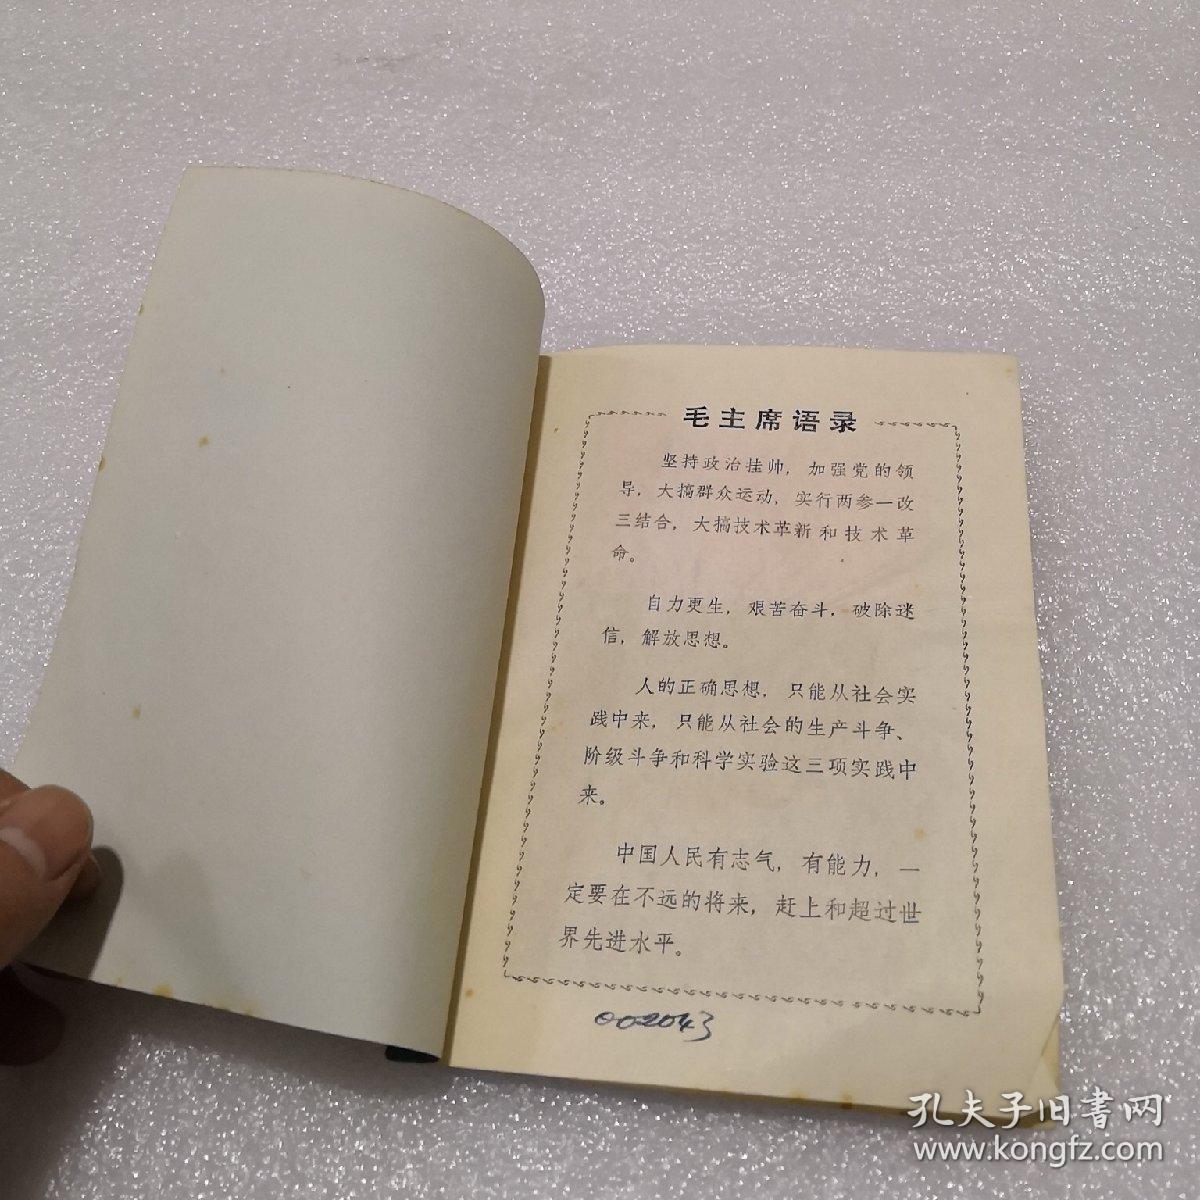 毛主席语录
坚持政治挂帅，加强党的领
导，大搞群众运动，实行两参一改
三结合，大搞技术革新和技术革
命。
自力更生，艰苦奋斗，破除迷
信，解放思想。
人的正确思想，只能从社会实
践中来，只能从社会的生产斗争、
阶级斗争和科学实验这三项实践中
来。
中国人民有志气，有能力，一
定要在不远的将来，赶上和超过世
界先进水平。
002043
孔夫子旧书网
www.kongfz.com